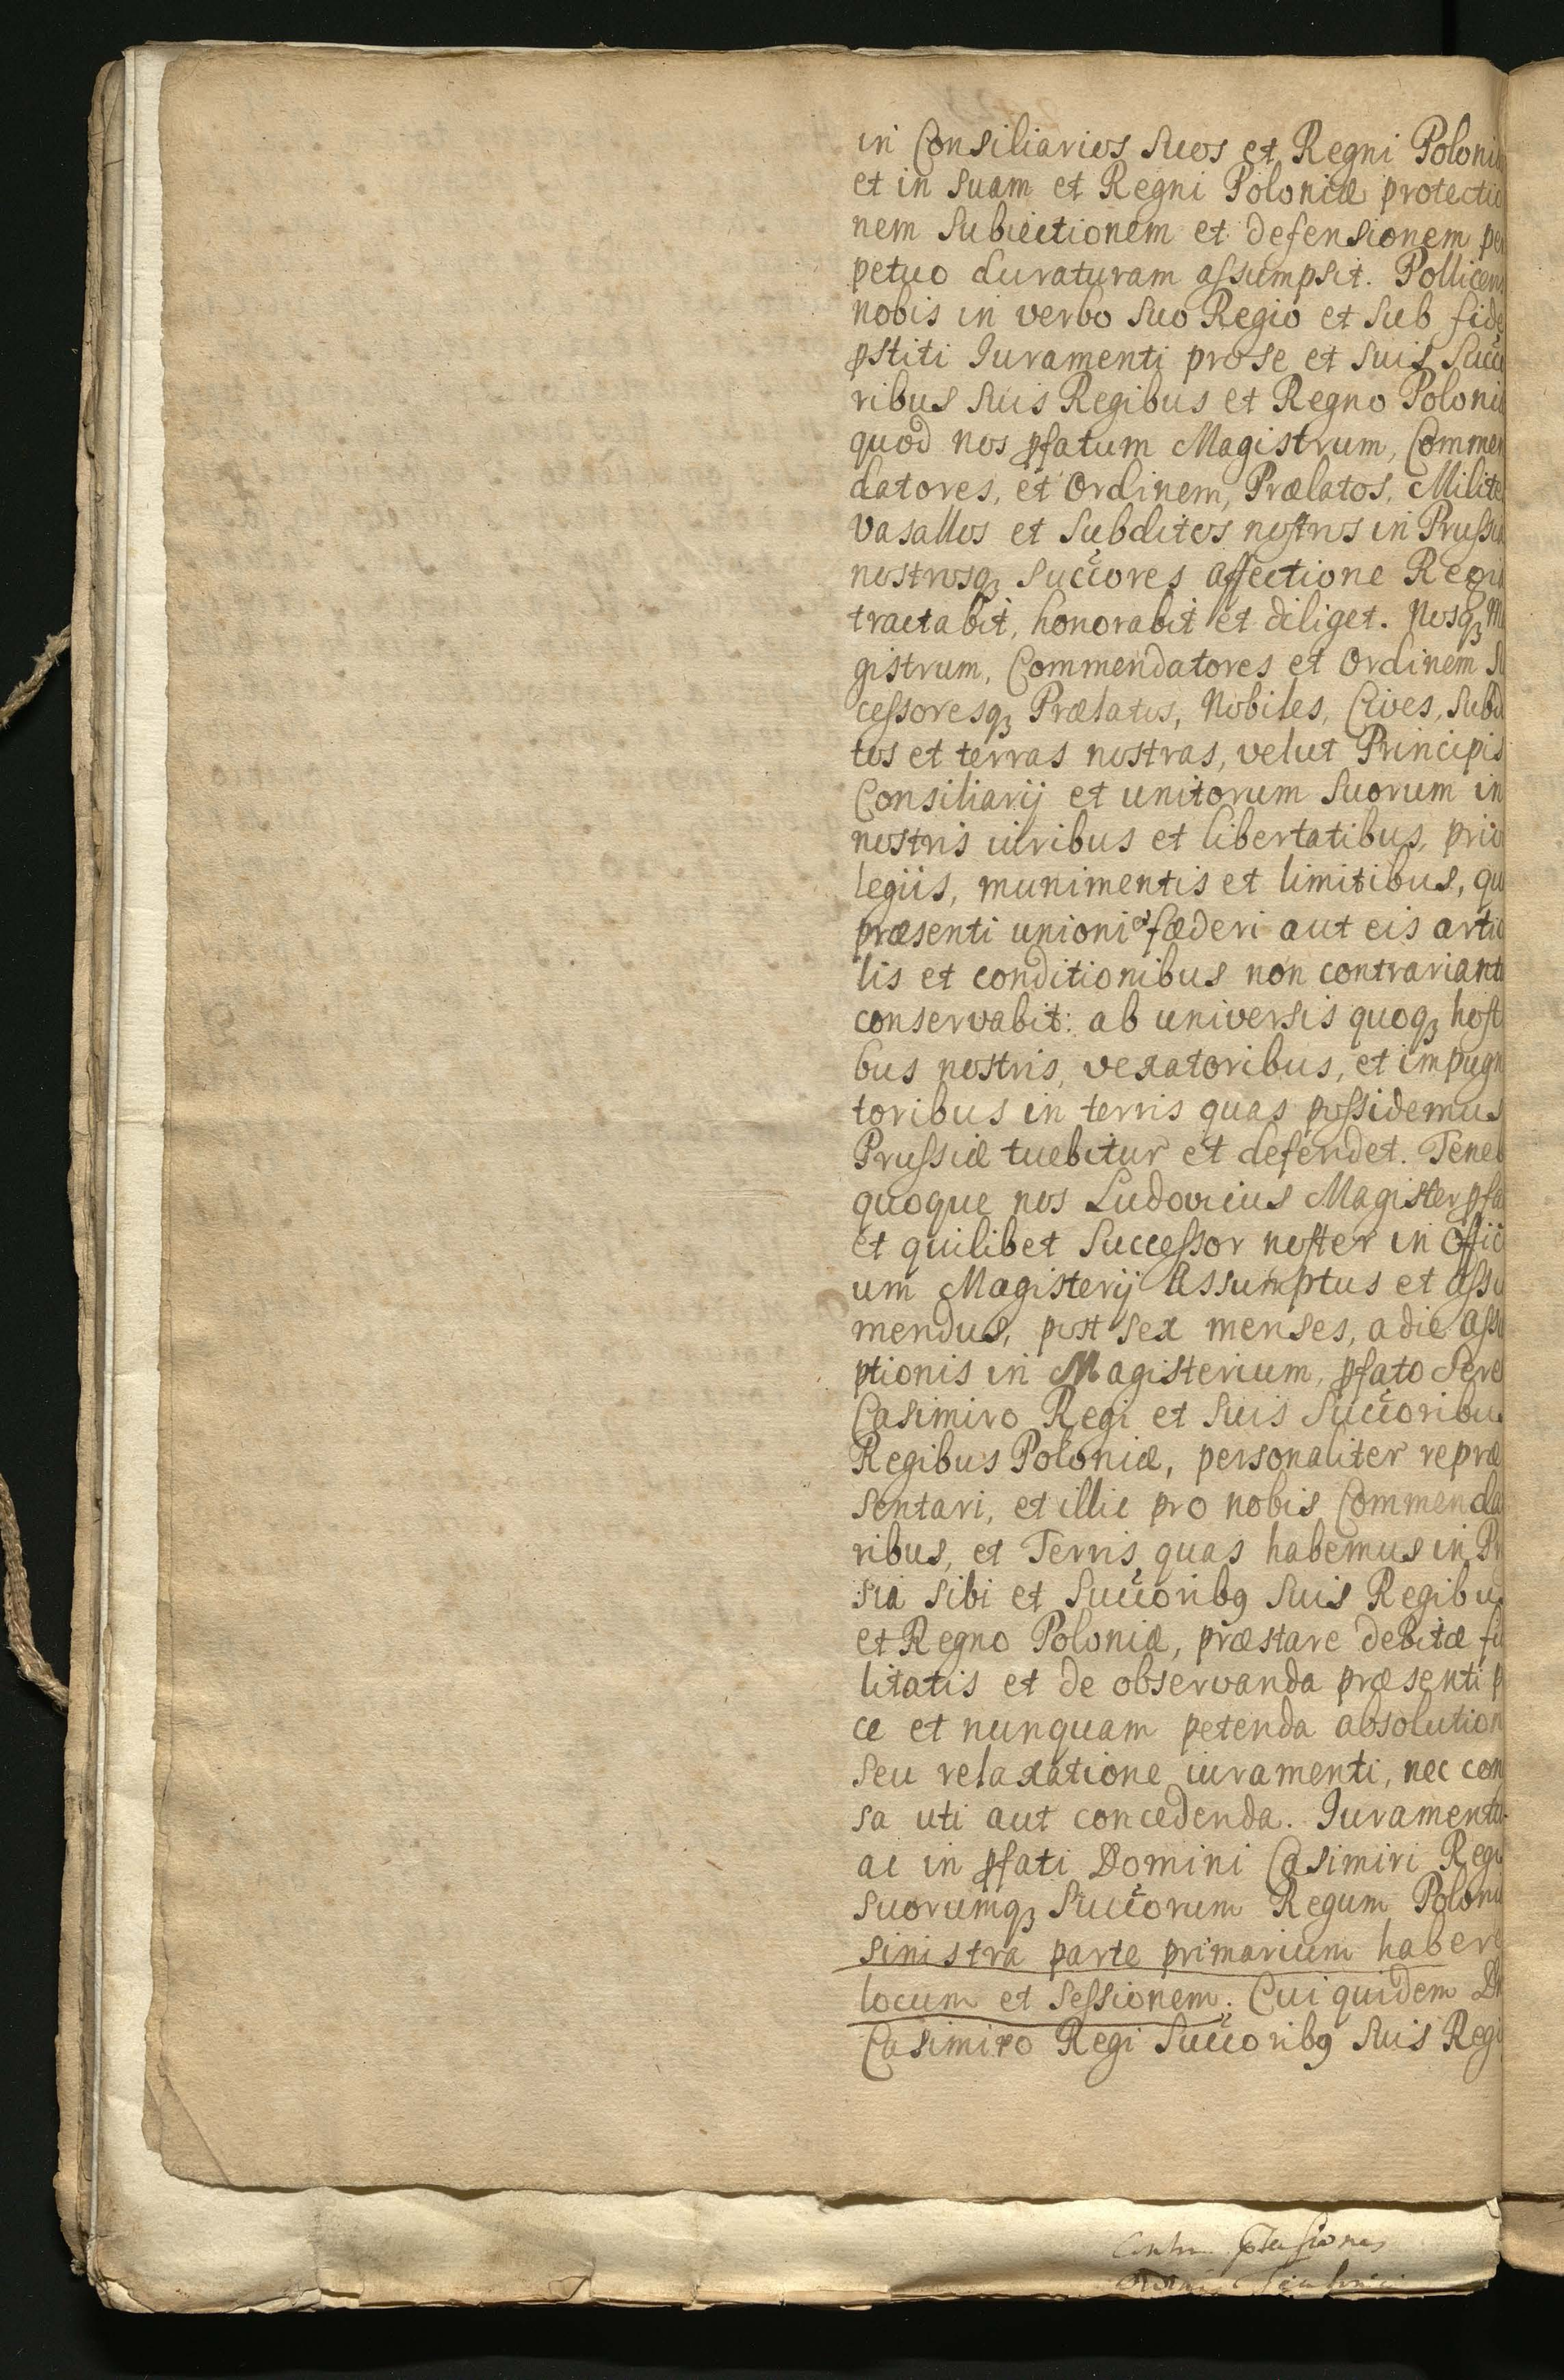 in Consiliarios Suos et Regni Poloniæ
et in Suam et Regni Poloniæ protectio
nem Subiectionem et defensionem per
petuo duraturam assumpsit. Pollicens
nobis in verbo Suo Regio et Sub fide
pstiti Iuramenti pro Se et Suis Succo
ribus Suis Regibus et Regno Poloniæ
quod nos pfatum Magistrum, Commen
datores, et Ordinem, Prælatos, Milites
Vasallos et Subditos nostros in Prussia
nostrosq3 Succores affectione Regia
tractabit, honorabit et diliget. Nosq3 Ma
gistrum, Commendatores et Ordinem Su
cessoresq3 Prælatos, Nobiles, Cives, Subdi
tos et terras nostras, velut Principis
Consiliarij et unitorum Suorum in
nostris iuribus et libertatibus, privi
legiis, munimentis et limitibus, qu
præsenti unioni et fæderi aut eis artic
lis et conditionibus non contrariant
conservabit: ab universis quoq3 hosti
bus nostris, vexatoribus, et impugn
toribus in terris quas possidemus
Prussiæ tuebitur et defendet. Teneb
quoque nos Ludovicus Magister pfa
et quilibet Successor noster in Offici
um Magisterij Assumptus et assu
mendus, post Sex menses, a die assu
ptionis in Magisterium, pfato Sere
Casimiro Regi et Suis Succoribus
Regibus Poloniæ, personaliter repræ
sentari, et illic pro nobis Commenda
ribus, et Terris quas habemus in Pr
sia Sibi et Succorib9 Suis Regibus
et Regno Poloniæ, præstare debitæ fi
litatis et de observanda præsenti p
ce et nunquam petenda absolution
Seu relaxatione iuramenti, nec con
sa uti aut concedenda. Iuramentu
ac in pfati Domini Casimiri Regi
suorumq3 Succorum Regum Poloni
sinistra parte primarium habere
locum et Sessionem. Cui quidem Dn
Casimiro Regi Succorib9 Suis Regi